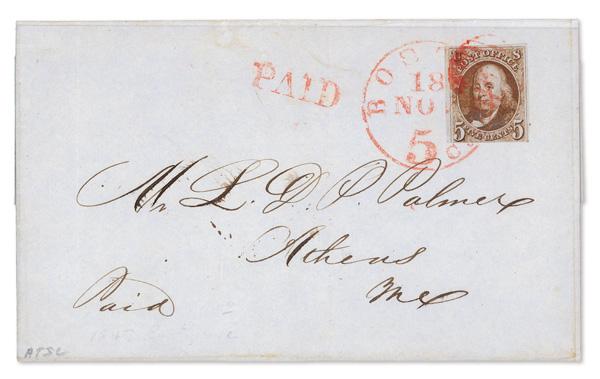 PAID
BOST
18
NO
5
CTS
POST OFFICE
5 FIVE CENTS 5
Mr L. D. P. Palmer
Athens
Me
Paid
ATSL